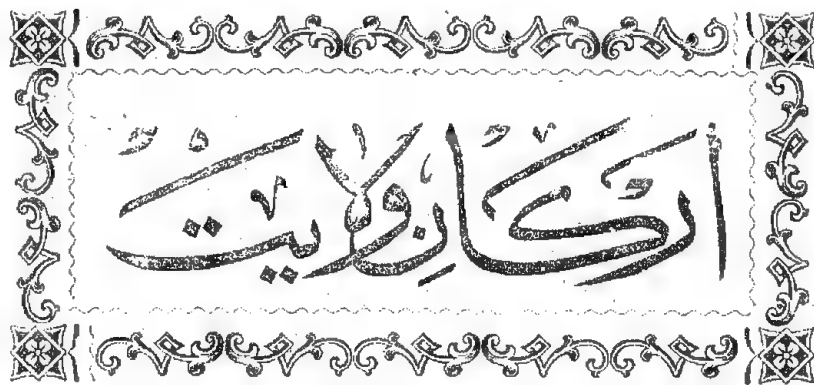 ارکارِ ولایت